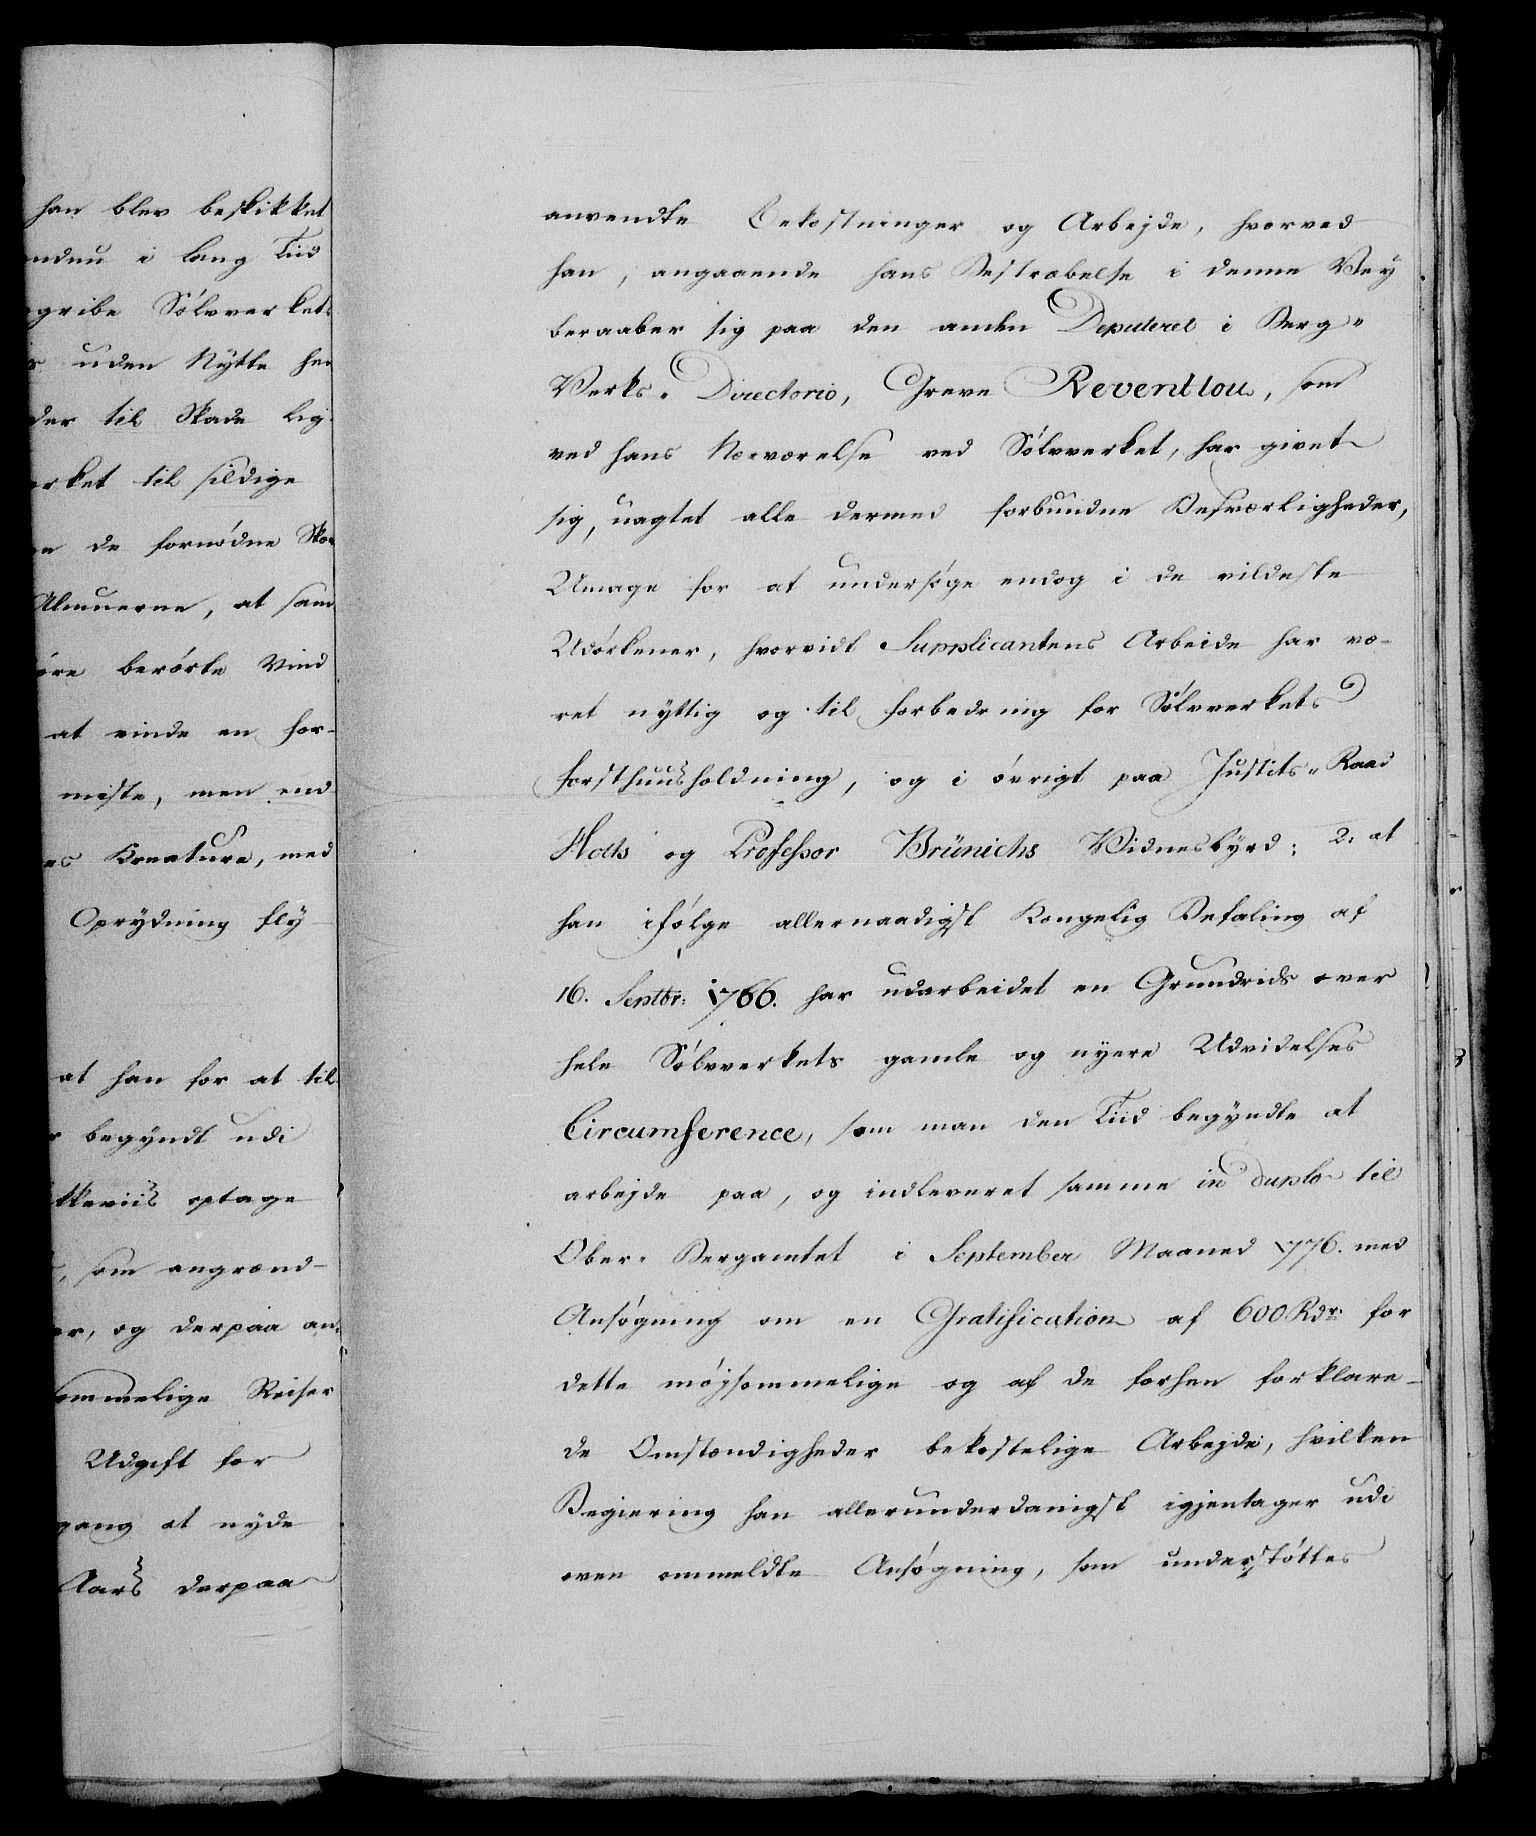 han blev beskikket
endnu i lang Tiid
gribe Sölvverkets
uden Nytte hen
der til Skade lig-
til sildige
de fornödne
Almuerne, at sam
berörte Vind
at vinde en for-
miste, men end
Kreature, med
Oprydning fly
at han for at til-
begyndt udi
optage
, som angrænd-
er, og derpaa an-
sommelige Reiser
Udgift for
gang at nyde
Aars derpaa
anvendte Bekostninger og Arbejde, hvorved
han, angaaende hans Bestræbelse i denne Vey
beraaber sig paa den anden Deputeret i Berg-
Verks- Directorio, Greve Reventlou, som
ved hans Nærværelse ved Sölvverket, har givet
sig, uagtet alle dermed forbundne Besværligheder,
Umage for at undersöge endog i de vildeste
Udörkener, hvorvidt Supplicantens Arbeide har væ-
ret nyttig og til forbedring for Sölvverkets
Forsthuusholdning, og i övrigt paa Justits- Raad
Holts og Professor Brünichs Vidnesbyrd; 2. at
han ifölge allernaadigst Kongelig Befaling af
16. Septbr: 1766. har udarbeidet en Grundrids over
hele Sölvverkets gamle og nyere Udvidelses
Circumference, som man den Tiid begyndte at
arbejde paa, og indleveret samme in duplo til
Ober- Bergamtet i September Maaned 1776. med
Ansögning om en Gratification af 600 Rdr. for
dette möjsommelige og af de forhen forklare-
de Omstændigheder bekostelige Arbejde, hvilken
Begiering han allerunderdanigst igjentager udi
oven ommeldte Ansögning, som understöttes